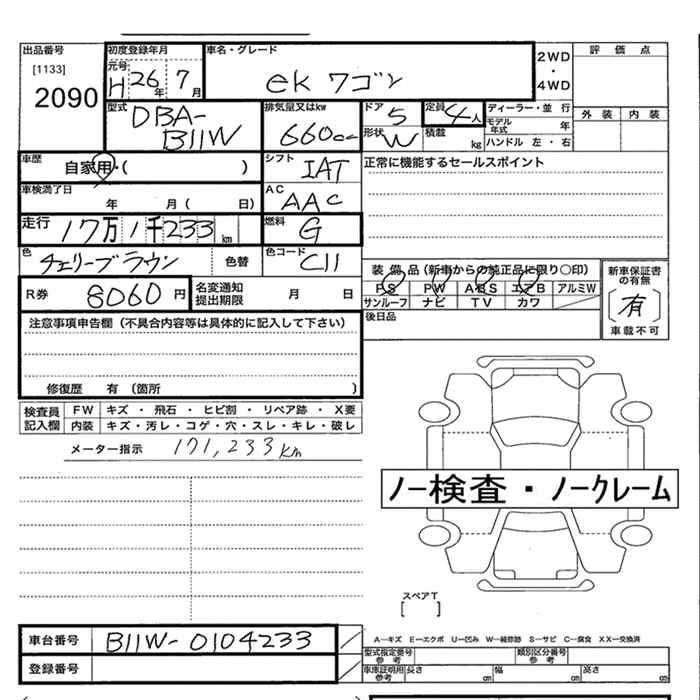 出品番号
[1133]
2090
初度登録年月
元号
H 26年 7月
車名・グレード
ek ワゴン
2WD
・
4WD
評価点
外装 内装
型式
DBA-
B11W
排気量又はkw
660cc
ドア
5
形状
W
定員
4人
積載
kg
ディーラー・並行
モデル年式 年
ハンドル 左・右
車歴
自家用・( )
シフト
IAT
正常に機能するセールスポイント
車検満了日
年 月( 日)
AC
AAC
走行
17万1千233km
燃料
G
色
チェリーブラウン
色替
色コード
C11
装備品(新車からの純正品に限り○印)
PS PW ABS エアB アルミW
サンルーフ ナビ TV カワ
新車保証書の有無
[有]
車載不可
R券
8060円
名変通知
提出期限
月 日
後日品
注意事項申告欄(不具合内容等は具体的に記入して下さい)
修復歴 有 (箇所 )
検査員
記入欄
FW キズ・飛石・ヒビ割・リペア跡・X要
内装 キズ・汚レ・コゲ・穴・スレ・キレ・破レ
メーター指示 171,233km
ノー検査・ノークレーム
スペアT
[ ]
車台番号
B11W-0104233
登録番号
A―キズ E―エクボ U―凹み W―補修跡 S―サビ C―腐食 XX―交換済
型式指定番号
参考
類別区分番号
参考
車庫証明用
参考
長さ cm
幅 cm
高さ cm